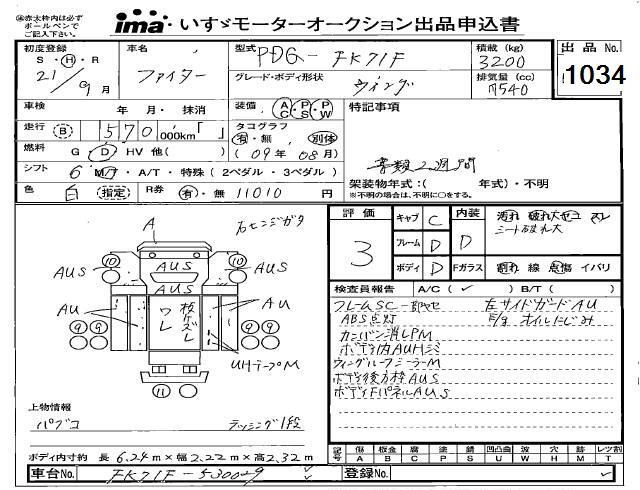 ㊟赤太枠内は必ず
ボールペンで
ご記入下さい。
ima・いすゞモーターオークション出品申込書
初度登録 車名 型式 PDG-FK71F 積載(kg) 出品No.
S・H・R ファイター グレード・ボディ形状 3200 1034
21/9月 ウィング 排気量(cc) 7540
車検 年・月・抹消 装備 AC PS PW 特記事項
走行 (B) 570,000km「 」 タコグラフ
有・無 別体
燃料 G D HV 他( ) (09年08月)
シフト 6 M/T・A/T・特殊(2ペダル・3ペダル) 架装物年式:( 年式)・不明
※不明の場合は、不明に○をする。
色 白 (指定) R券 有・無 11010円
A 右ヒンジガタ
評価 3 キャブ C 内装 D 汚れ 破れ大
シート破れ大
フレーム D
ボディ D Fガラス 割れ 線 点傷 イバリ
検査員報告 A/C(✓) B/T( )
フレームSC一部ヤセ 左サイドガードAU
ABS点灯 E/g オイルにじみ
カンバン消しPM
ボディ内AUHミジ
ウィングルーフシーラーM
ボディ後方枠AUS
ボディFパネルAUS
10 AUS 10
AUS AUS AUS
AU AU
ワレ 板ケズレ
9 9 9 9
UHテープM
11
上物情報
パブコ ラッシング1段
ボディ内寸約 長6.24m×幅2.22m×高2.32m
記号 傷 板金 腐 塗 錆 凹凸 波 穴 跡 レツ割
A B C P S U W H M T
車台No. FK71F-530029 登録No.